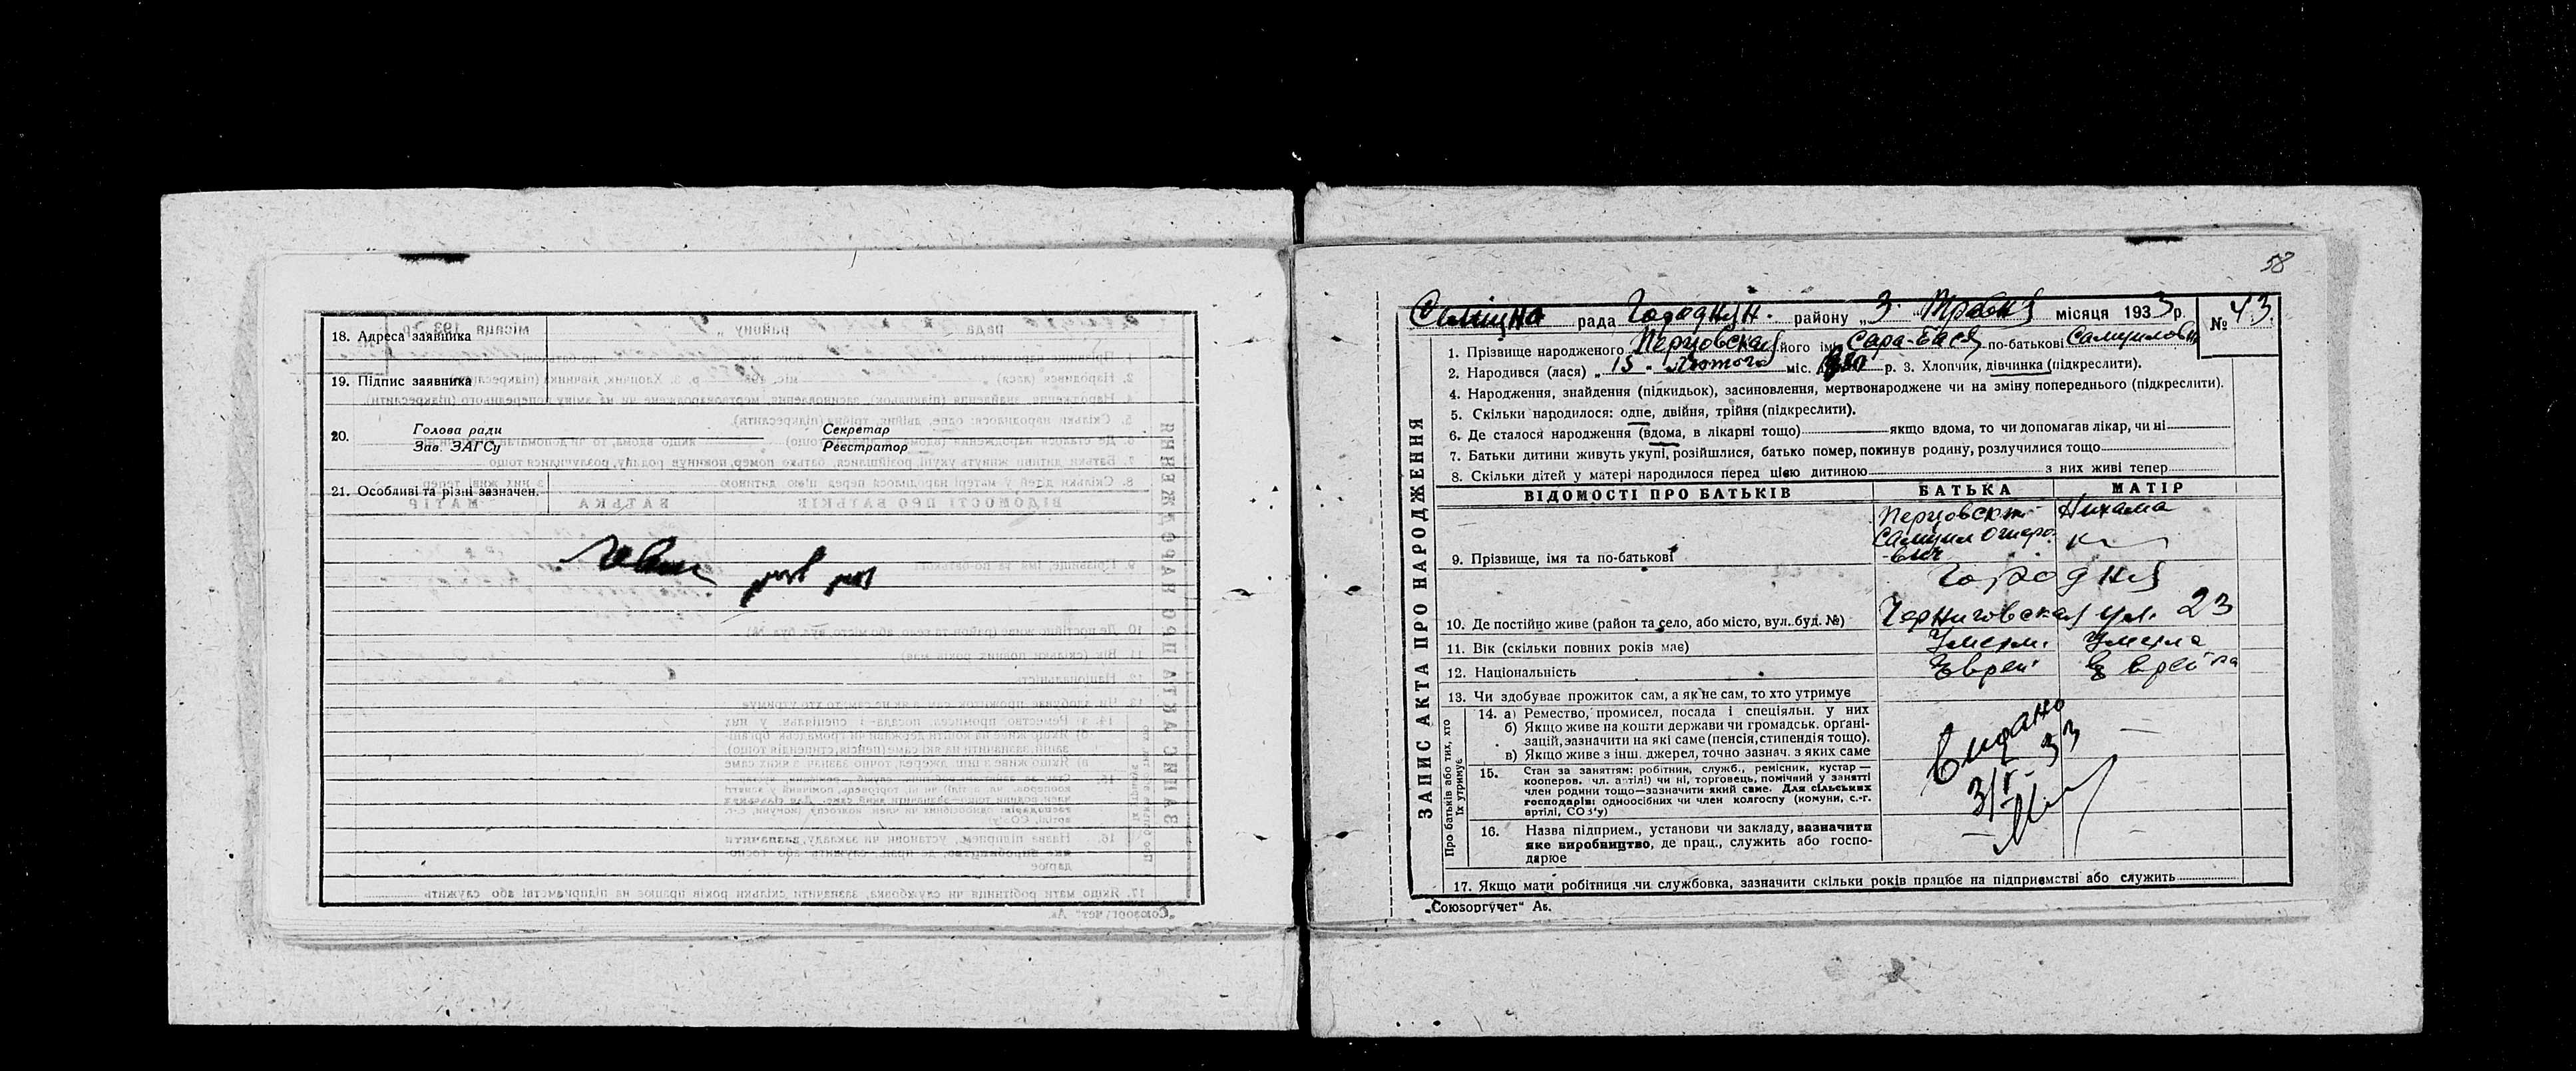 18. Адреса заявника
19. Підпис заявника
20. Голова ради Секретар
Зав. ЗАГСу Реєстратор
21. Особливі та різні зазначен.
58
рада Городнун. району „3 Травня місяця 1933 р. № 43.
1. Прізвище народженого Перцовская його ім. Сара-Бася по-батькові Самуиловна
2. Народився (лася) „ 15 „ Лютого міс. р. 3. Хлопчик, дівчинка (підкреслити).
4. Народження, знайдення (підкидьок), засиновлення, мертвонароджене чи на зміну попереднього (підкреслити).
5. Скільки народилося: одне, двійня, трійня (підкреслити).
6. Де сталося народження (вдома, в лікарні тощо) якщо вдома, то чи допомагав лікар, чи ні
7. Батьки дитини живуть укупі, розійшлися, батько помер, покинув родину, розлучилися тощо
8. Скільки дітей у матері народилося перед цією дитиною з них живі тепер
ЗАПИС АКТА ПРО НАРОДЖЕННЯ
ВІДОМОСТІ ПРО БАТЬКІВ БАТЬКА МАТІР
Перцовский Нихама
Самуил Ошеро-
9. Прізвище, імя та по-батькові -вич
Городня
10. Де постійно живе (район та село, або місто, вул. буд. №) Черниговская ул. 23
11. Вік (скільки повних років має) Умерл. Умерла
12. Національність Еврей Еврейка
13. Чи здобуває прожиток сам, а як не сам, то хто утримує
Про батьків або тих, хто їх утримує
14. а) Ремество, промисел, посада і спеціяльн. у них
б) Якщо живе на кошти держави чи громадськ. органі-
зацій, зазначити на які саме (пенсія, стипендія тощо).
в) Якщо живе з інш. джерел, точно зазнач. з яких саме
Видано
3/V-33
15. Стан за заняттям: робітник, служб., ремісник, кустар —
кооперов. чл. артілі) чи ні, торговець, помічний у занятті
член родини тощо—зазначити який саме. Для сільських
господарів: одноосібних чи член колгоспу (комуни, с.-г.
артілі, СОЗ'у)
16. Назва підприєм., установи чи закладу, вазначити
яке виробництво, де прац., служить або госпо-
дарює
17. Якщо мати робітниця чи службовка, зазначити скільки років працює на підприємстві або служить
„Союзоргучет“ Ав.